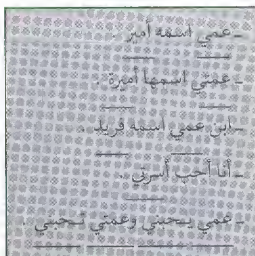 - عمي اسمه أمير .
- عمتي اسمها أميرة .
- ابن عمي اسمه فريد .
- أنا أحب أسرتي .
- عمي يحبني وعمتي تحبني .